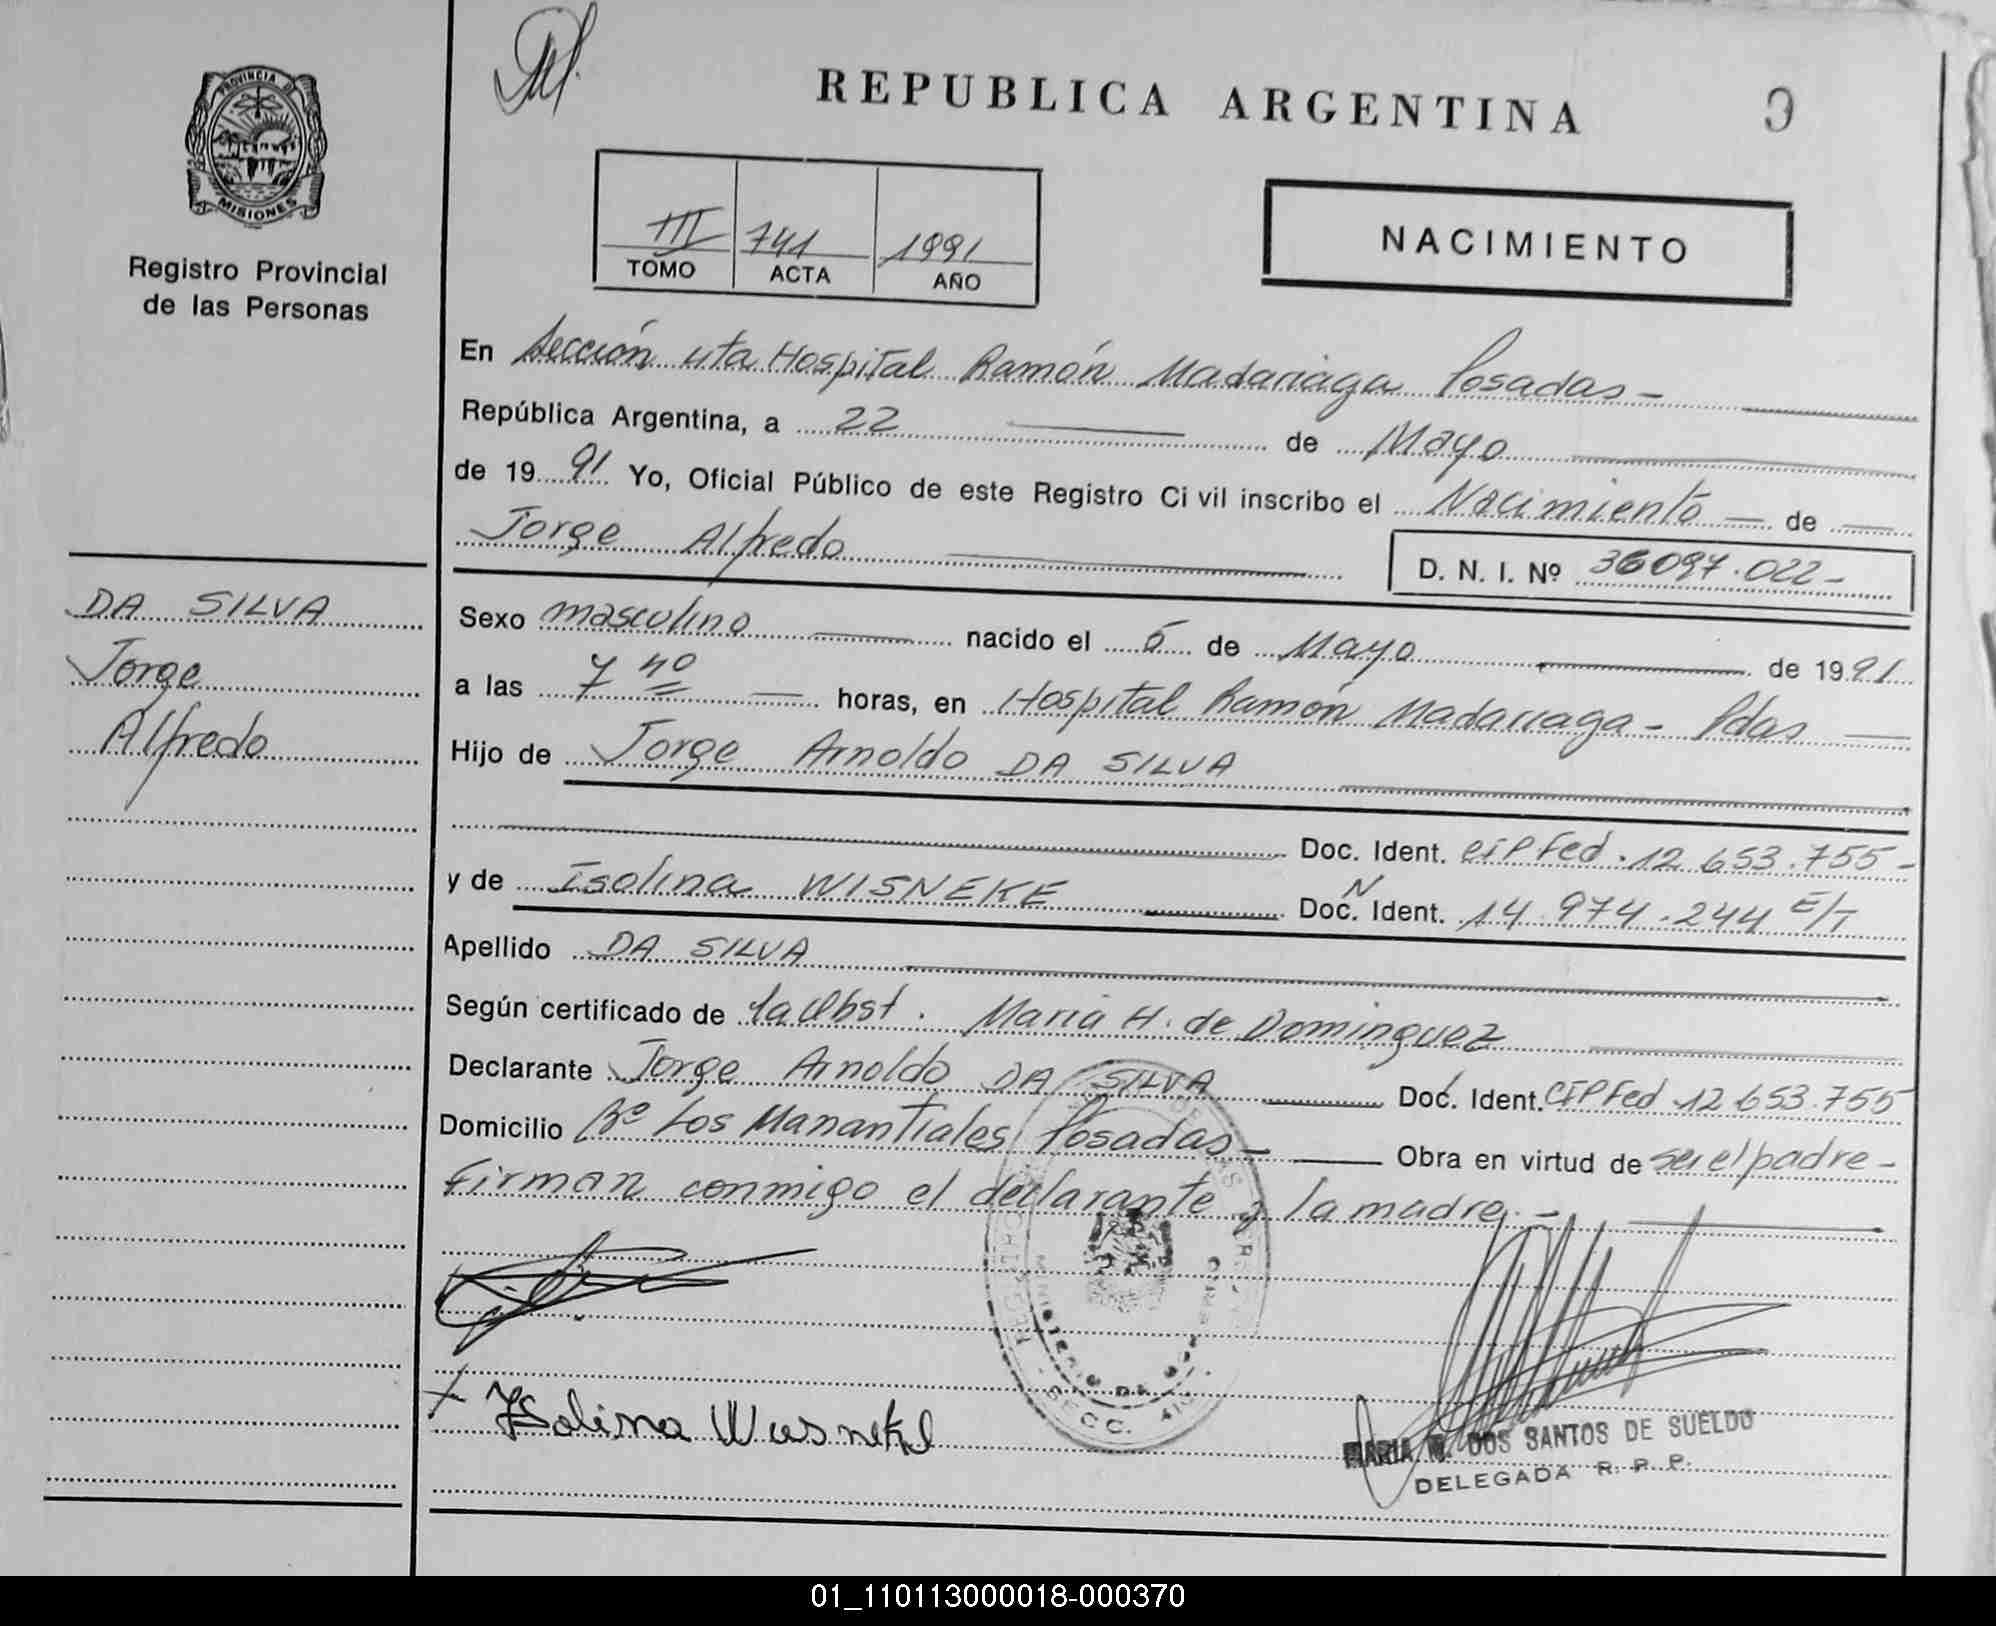 PROVINCIA DE
MISIONES
Registro Provincial
de las Personas
DA SILVA
Jorge
Alfredo
REPUBLICA ARGENTINA
III 741 1991
TOMO ACTA AÑO
NACIMIENTO
En Sección 4ta Hospital Ramón Madariaga Posadas -
República Argentina, a 22 de Mayo
de 1991 Yo, Oficial Público de este Registro Civil inscribo el Nacimiento de
Jorge Alfredo
D. N. I. Nº 36097.022-
Sexo masculino nacido el 6 de Mayo de 1991
a las 7 40 horas, en Hospital Ramón Madariaga - Pdas
Hijo de Jorge Arnoldo DA SILVA
Doc. Ident. CIPFed. 12 653.755-
y de Isolina WISNEKE Doc. Ident. 14.974.244 E/T
N
Apellido DA SILVA
Según certificado de la Obst. Maria H. de Dominguez
Declarante Jorge Arnoldo DA SILVA Doc. Ident. CIPFed 12 653.755
Domicilio Bº Los Manantiales Posadas - Obra en virtud de ser el padre -
Firman conmigo el declarante y la madre. -
SECC. 4ta
x Isolina Wisneke
MARIA DOS SANTOS DE SUELDO
DELEGADA R. P. P.
01_110113000018-000370